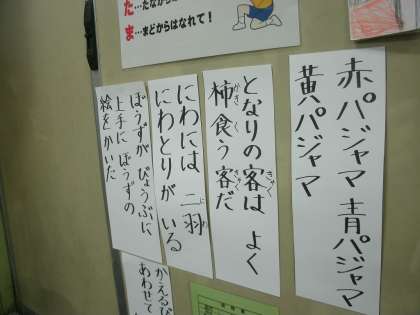 ま…まどからはなれて！
赤パジャマ 青パジャマ
黄パジャマ
となりの客は よく
柿食う客だ
にわには 二羽
にわとりが いる
ぼうずが びょうぶに
上手に ぼうずの
絵をかいた
かえるぴ
あわせて